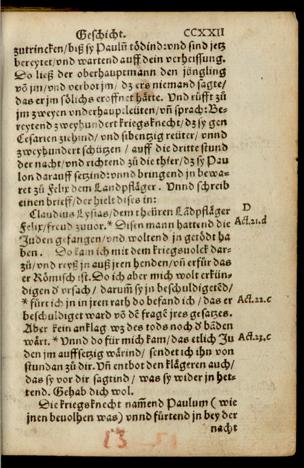 Geschicht. CCXXII
zutrincken/biß sy Paulū tödind: vnd sind jetz
bereytet/vnd wartend auff dein verheissung.
Do ließ der oberhauptmann den jüngling
vō jm/vnd verbot jm/ dz ers niemand sagte/
das er jm sölichs eroffnet hätte. Vnd rüfft zů
jm zweyen vnderhauptleüten/vn̄ sprach: Be-
reytend zweyhundert kriegsknecht/dz sy gen
Cesarien ziehind/ vnd sibentzig reüter/ vnnd
zweyhundert schützen / auff die dritte stund
der nacht/vnd richtend zů die thier/dz sy Pau
lon darauff setzind: vnnd bringend jn bewa-
ret zů Felix dem Landpfläger. Vnnd schreib
einen brieff/der hielt dises in:
Claudius Lysias/dem theüren Lādpfläger D
Felix/freud zuuor. * Disen mann hattend die Act.21.d
Juden gefangen/vnd woltend jn getödt ha
ben. Do kam ich mit dem kriegsuolck dar-
zů/vnd reyß jn auß jren henden/vn̄ erfůr das
er Römisch ist. Do ich aber mich wolt erkün-
digen d' vrsach/ darum̄ sy jn beschuldigetēd/
* fürt ich jn in jren rath do befand ich / das er Act.22.c
beschuldiget ward vō dē fragē jres gesatzes.
Aber kein anklag wz des tods noch d' bāden
wärt. * Vnnd do für mich kam/das etlich Ju Act.23.c
den jm auffsetzig wärind/ sendet ich jhn von
stundan zů dir. Vn̄ entbot den klägeren auch/
das sy vor dir sagtind / was sy wider jn het-
tend. Gehab dich wol.
Die kriegsknecht nam̄end Paulum ( wie
jnen beuolhen was) vnnd fürtend jn bey der
nacht